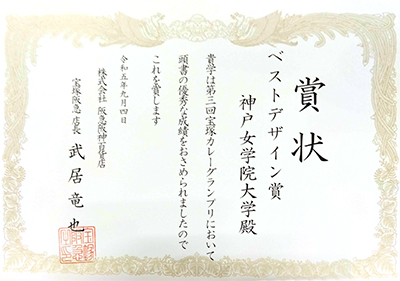 賞状
ベストデザイン賞
神戸女学院大学殿
貴学は第三回宝塚カレーグランプリにおいて
頭書の優秀な成績をおさめられましたので
これを賞します
令和五年九月四日
株式会社 阪急阪神百貨店
宝塚阪急 店長 武居竜也